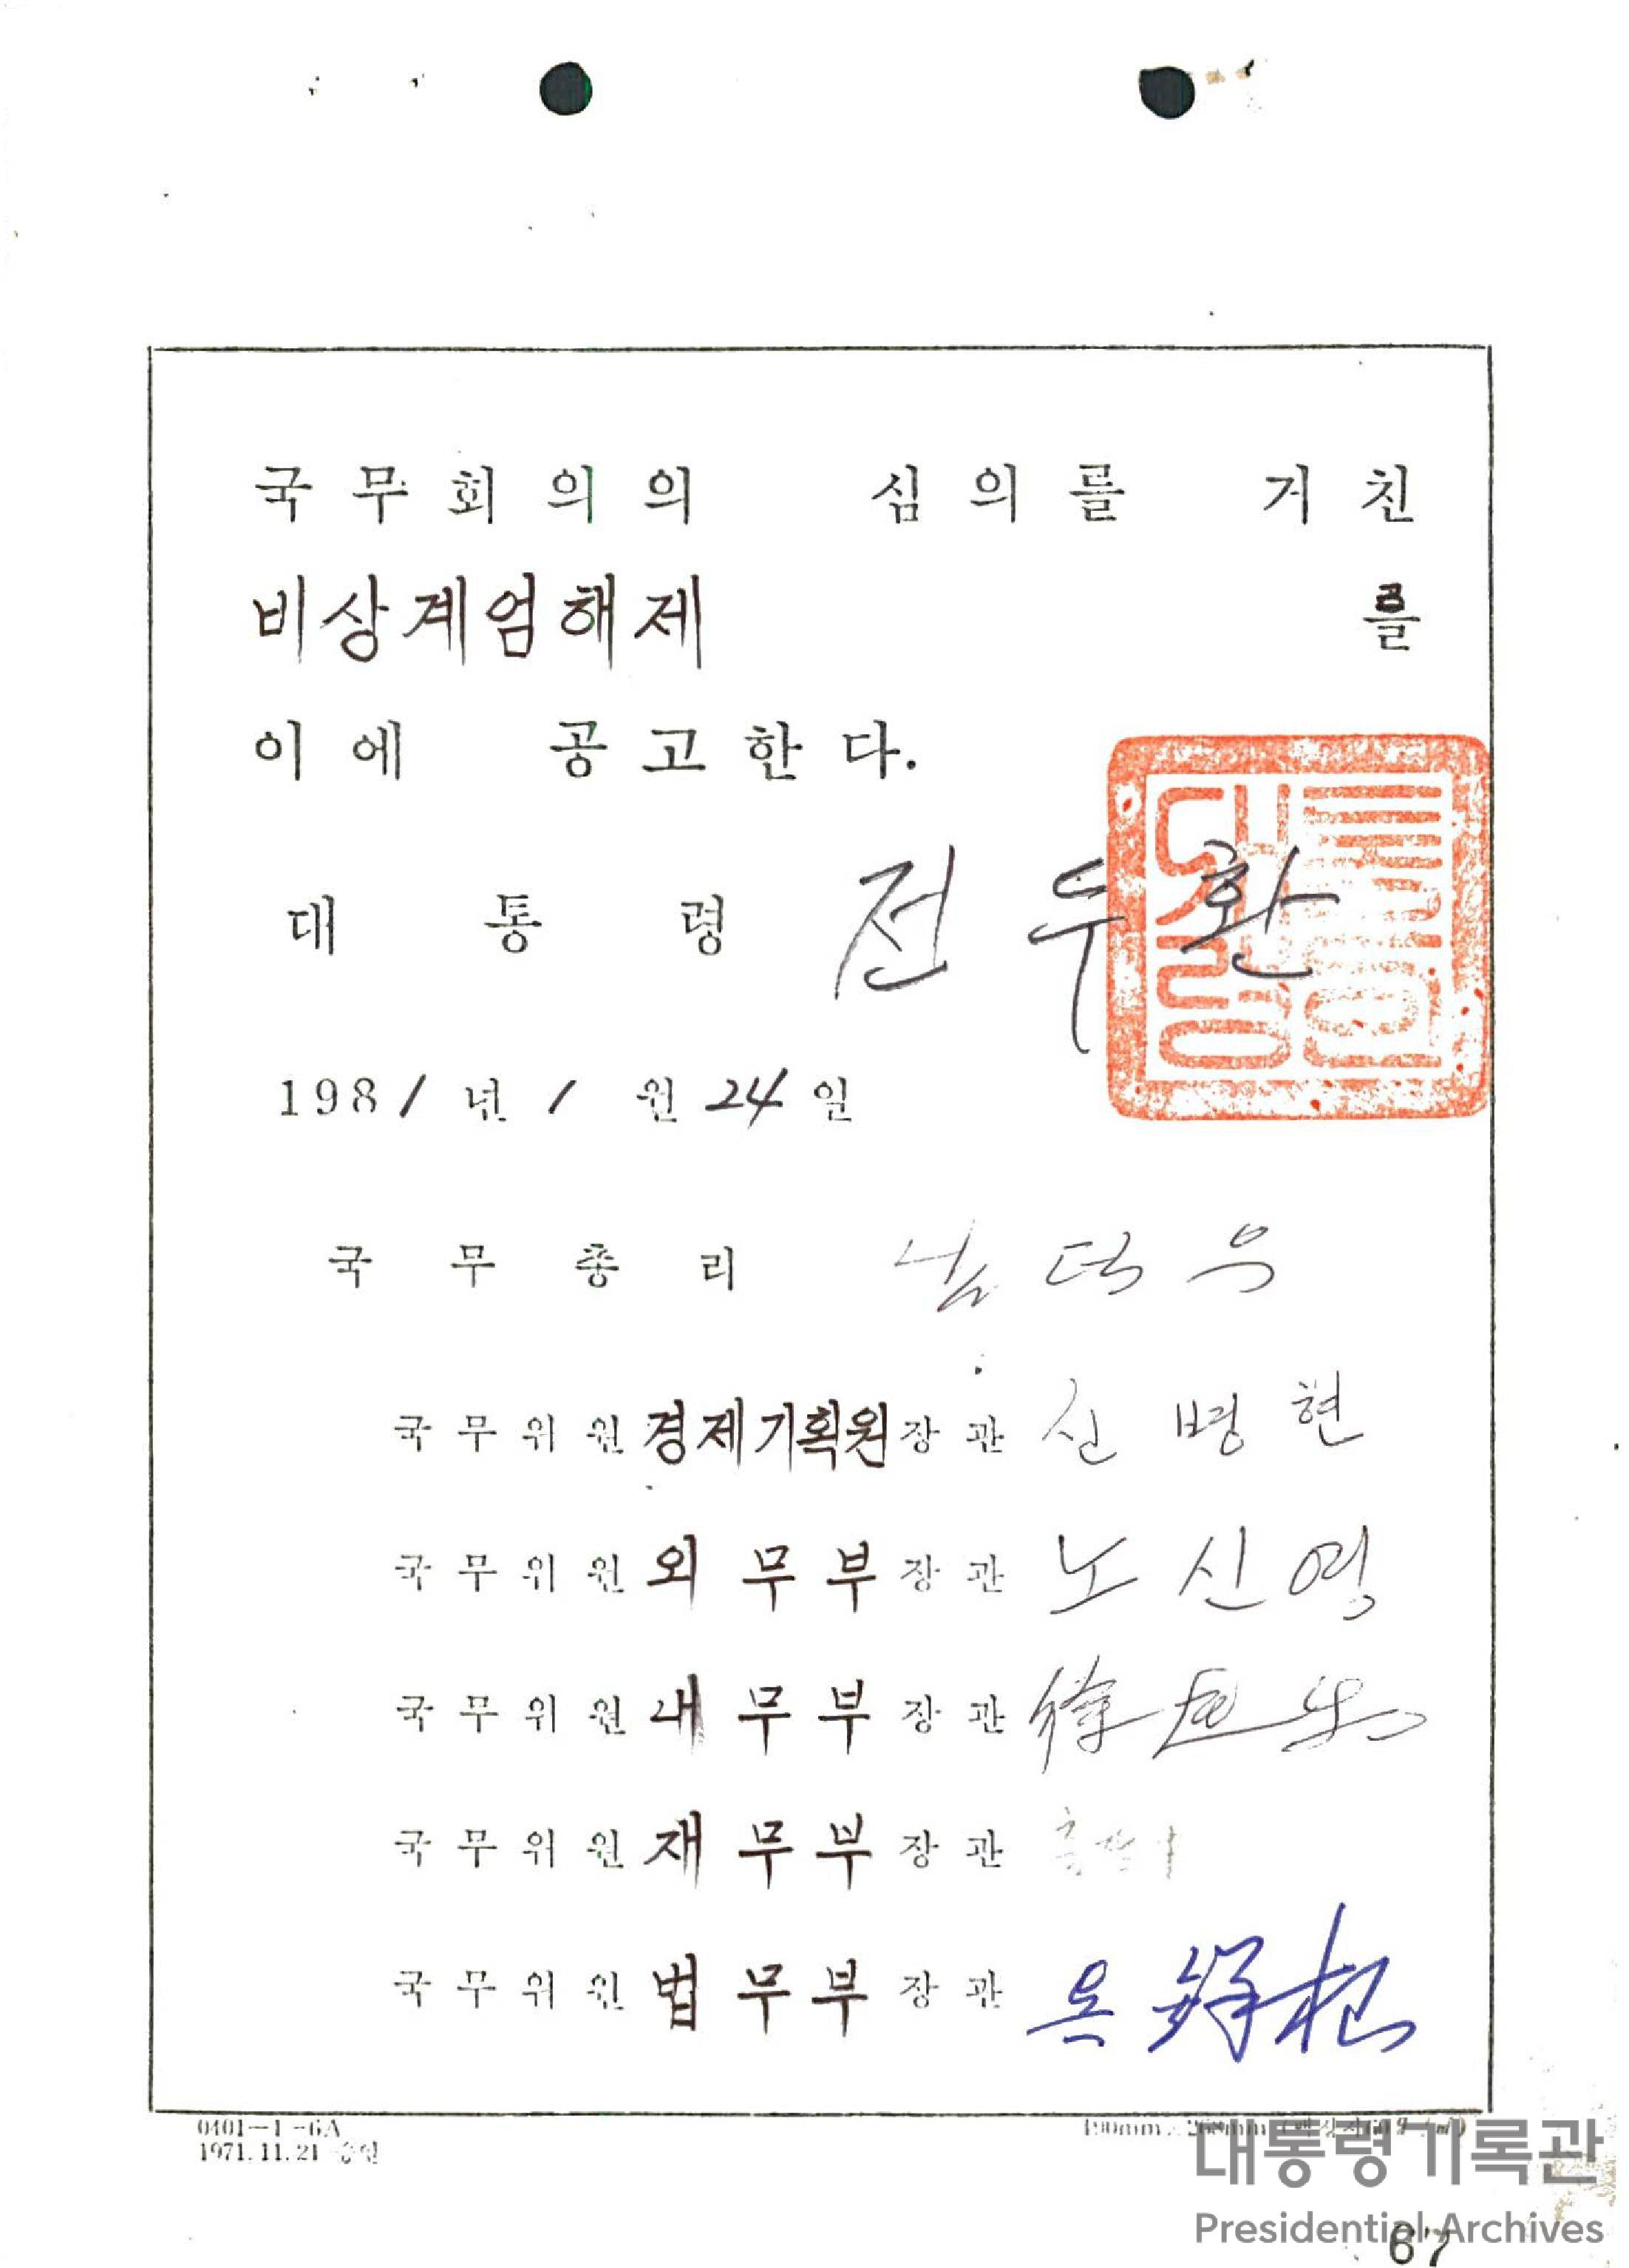 국무회의의 심의를 거친
비상계엄해제 를
이에 공고한다.
대통령 전두환
대통령
1981년 1월 24일
국무총리 남덕우
국무위원 경제기획원장관 신병현
국무위원 외무부장관 노신영
국무위원 내무부장관 徐
국무위원 재무부장관
국무위원 법무부장관 吳鐸根
0401-1-6A
1971.11.21 승인
190mm×268mm
대통령기록관
Presidential Archives
67